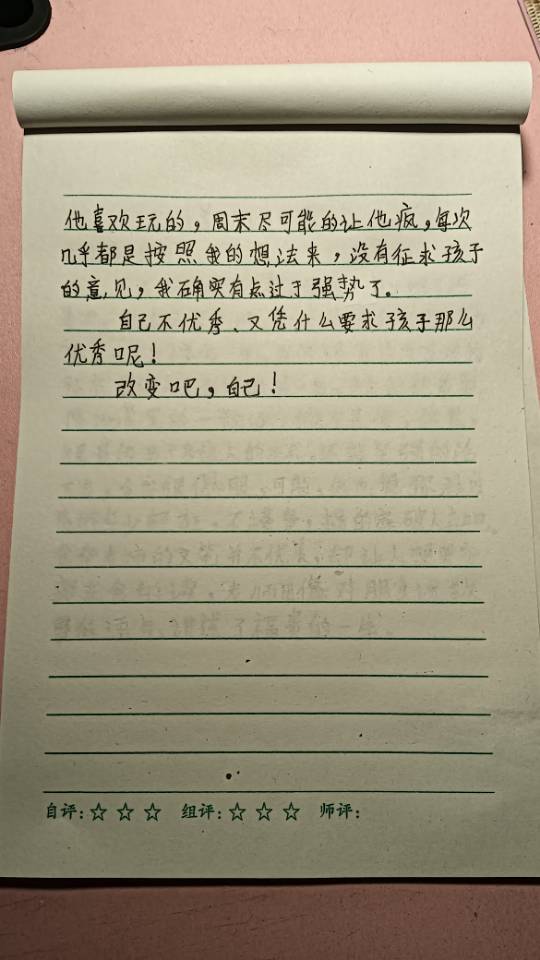 他喜欢玩的，周末尽可能的让他疯，每次
几乎都是按照我的想法来，没有征求孩子
的意见，我确实有点过于强势了。
自己不优秀、又凭什么要求孩子那么
优秀呢！
改变吧，自己！
自评：☆ ☆ ☆ 组评：☆ ☆ ☆ 师评：